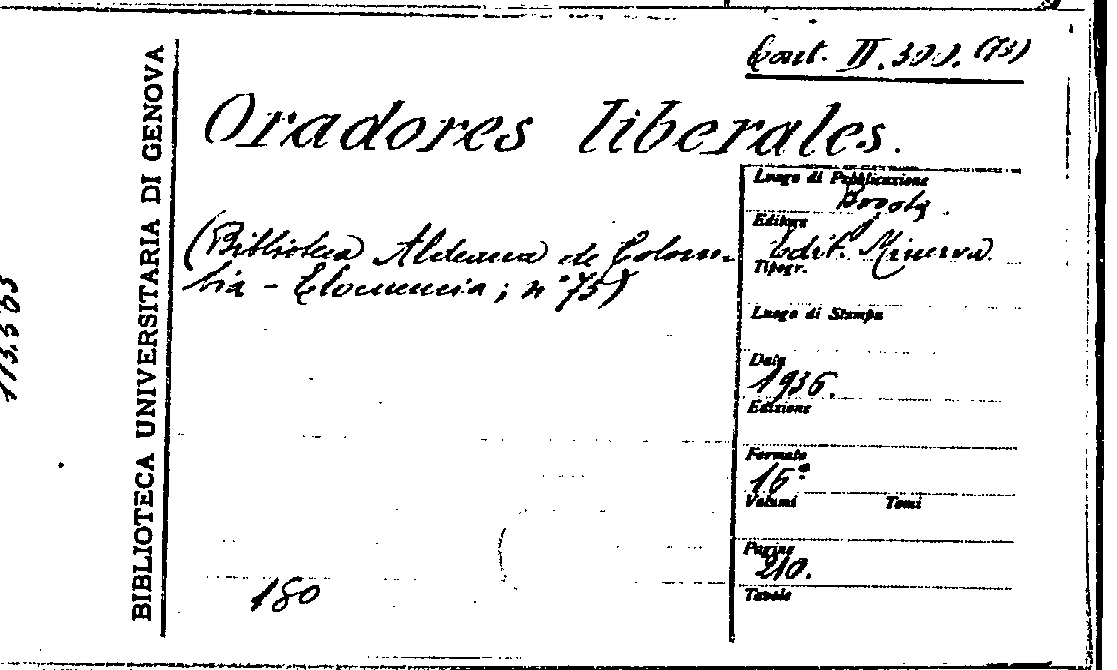 Cart. II. 300. (73)
Oradores liberales.
(Biblioteca Aldeana de Colom-
bia - Elocuencia; n° 75)
180
BIBLIOTECA UNIVERSITARIA DI GENOVA
Luogo di Pubblicazione
Bogotá.
Editore
Edit. Minerva
Tipogr.
Luogo di Stampa
Data
1936.
Edizione
Formato
16°
Volumi Tomi
Pagine
210.
Tavole